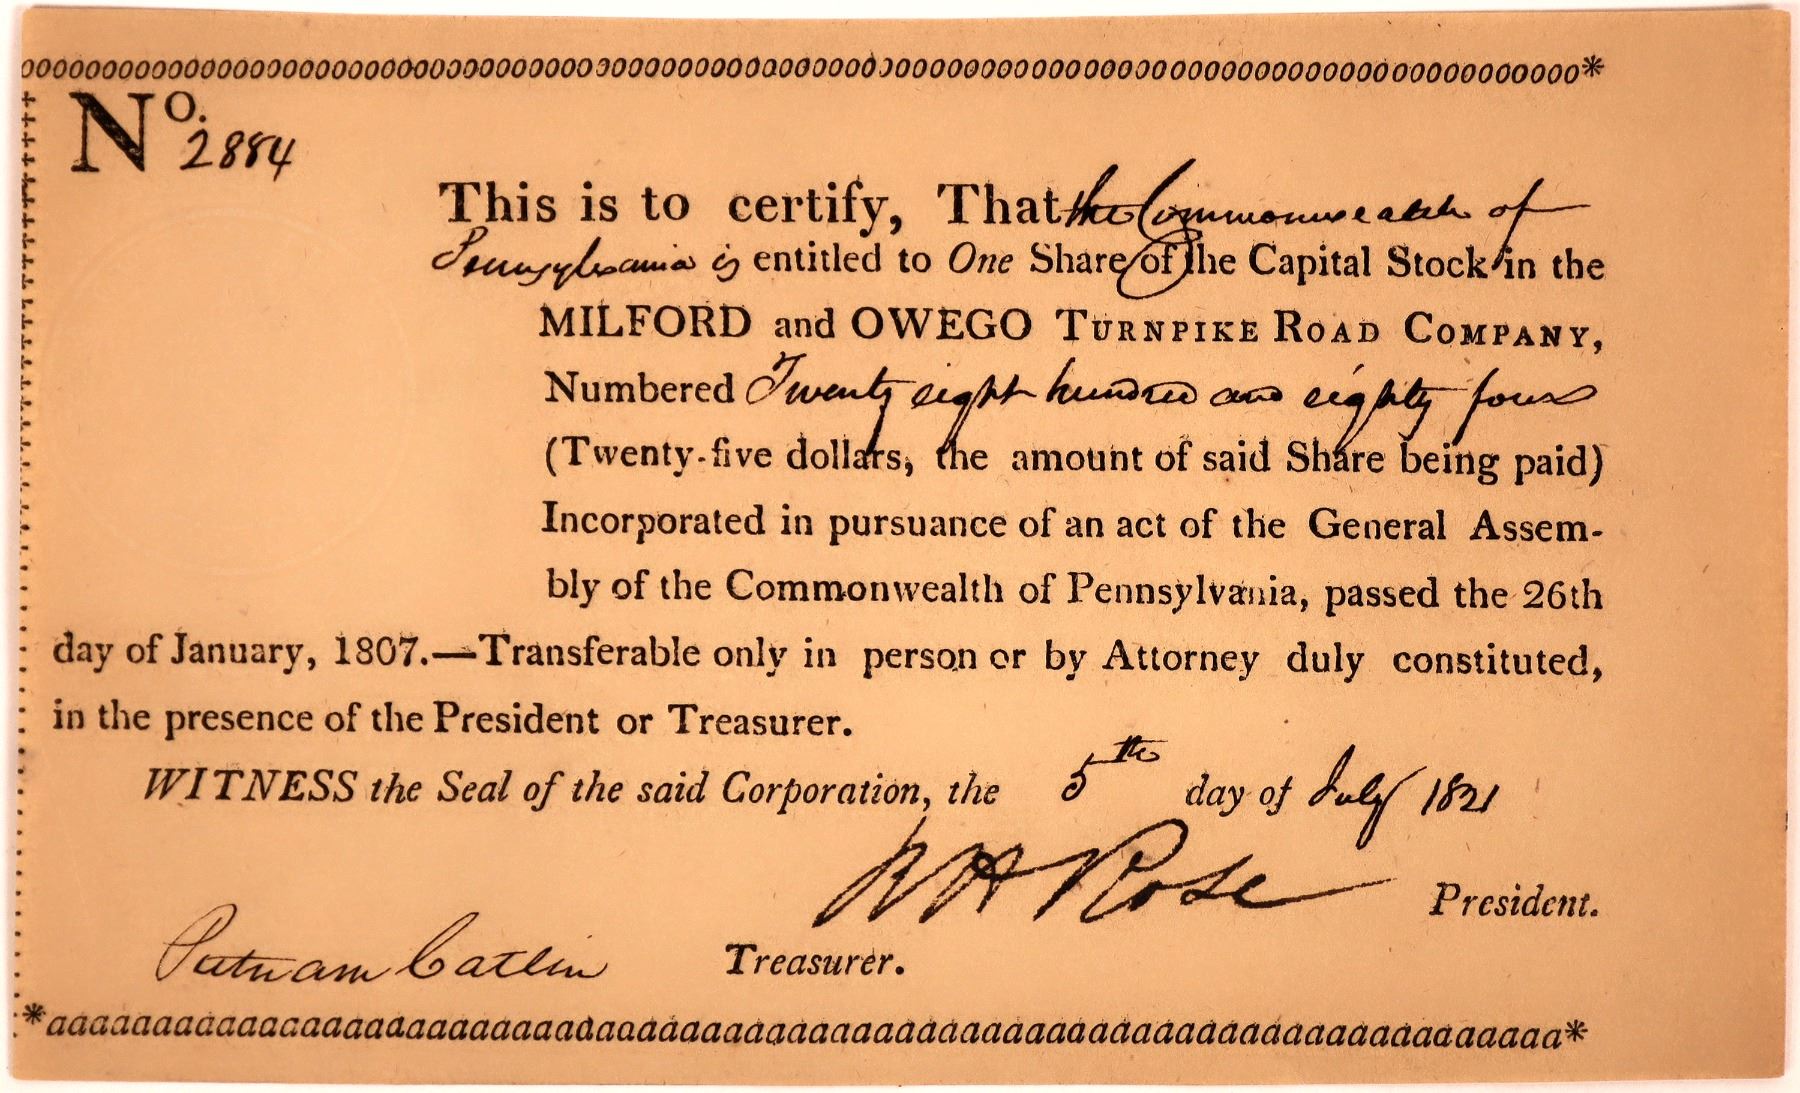 ooooooooooooooooooooooooooooooooooooooooooooooooooooooooooooooooooooooooooooooooooooooooooooooo*
No. 2884
This is to certify, That the Commonwealth of
Pennsylvania is entitled to One Share of the Capital Stock in the
MILFORD and OWEGO TURNPIKE ROAD COMPANY,
Numbered Twenty eight hundred and eighty four
(Twenty-five dollars, the amount of said Share being paid)
Incorporated in pursuance of an act of the General Assem-
bly of the Commonwealth of Pennsylvania, passed the 26th
day of January, 1807.—Transferable only in person or by Attorney duly constituted,
in the presence of the President or Treasurer.
WITNESS the Seal of the said Corporation, the 5th day of July 1821
W H Rose President.
Putnam Catlin Treasurer.
*aaaaaaaaaaaaaaaaaaaaaaaaaaaaaaaaaaaaaaaaaaaaaaaaaaaaaaaaaaaaaaaaaaaaaaaa*